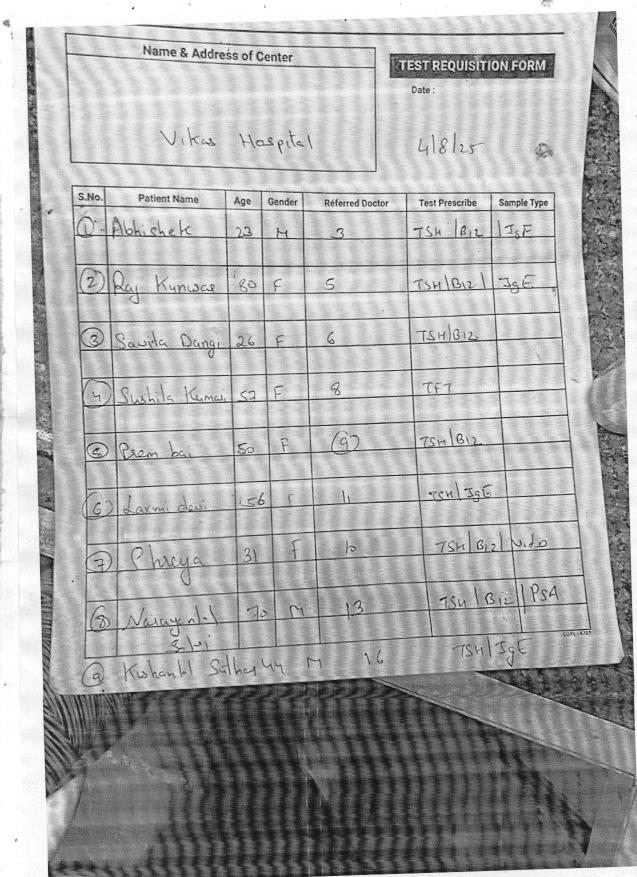 Name & Address of Center
TEST REQUISITION FORM
Date :
Vikas Hospital
4/8/25
S.No. Patient Name Age Gender Referred Doctor Test Prescribe Sample Type
1 - Abhishek 23 M 3 TSH / B12 / IgE
2 Raj Kunwar 80 F 5 TSH/B12/ IgE
3 Savita Dangi 26 F 6 TSH/B12
4 Sushila Kumari 57 F 8 TFT
5 Prem bai 50 F 9 TSH/B12
6 Laxmi devi 56 F 11 TSH/ IgE
7 31 F 10 TSH/ B12/ Vit D
8 Narayanlal 70 M 13 TSH / B12 / PSA
9 Kishanlal Suthar 44 M 16 TSH/ IgE